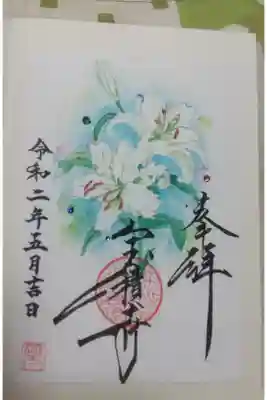 奉拝
宝積寺
令和二年五月吉日